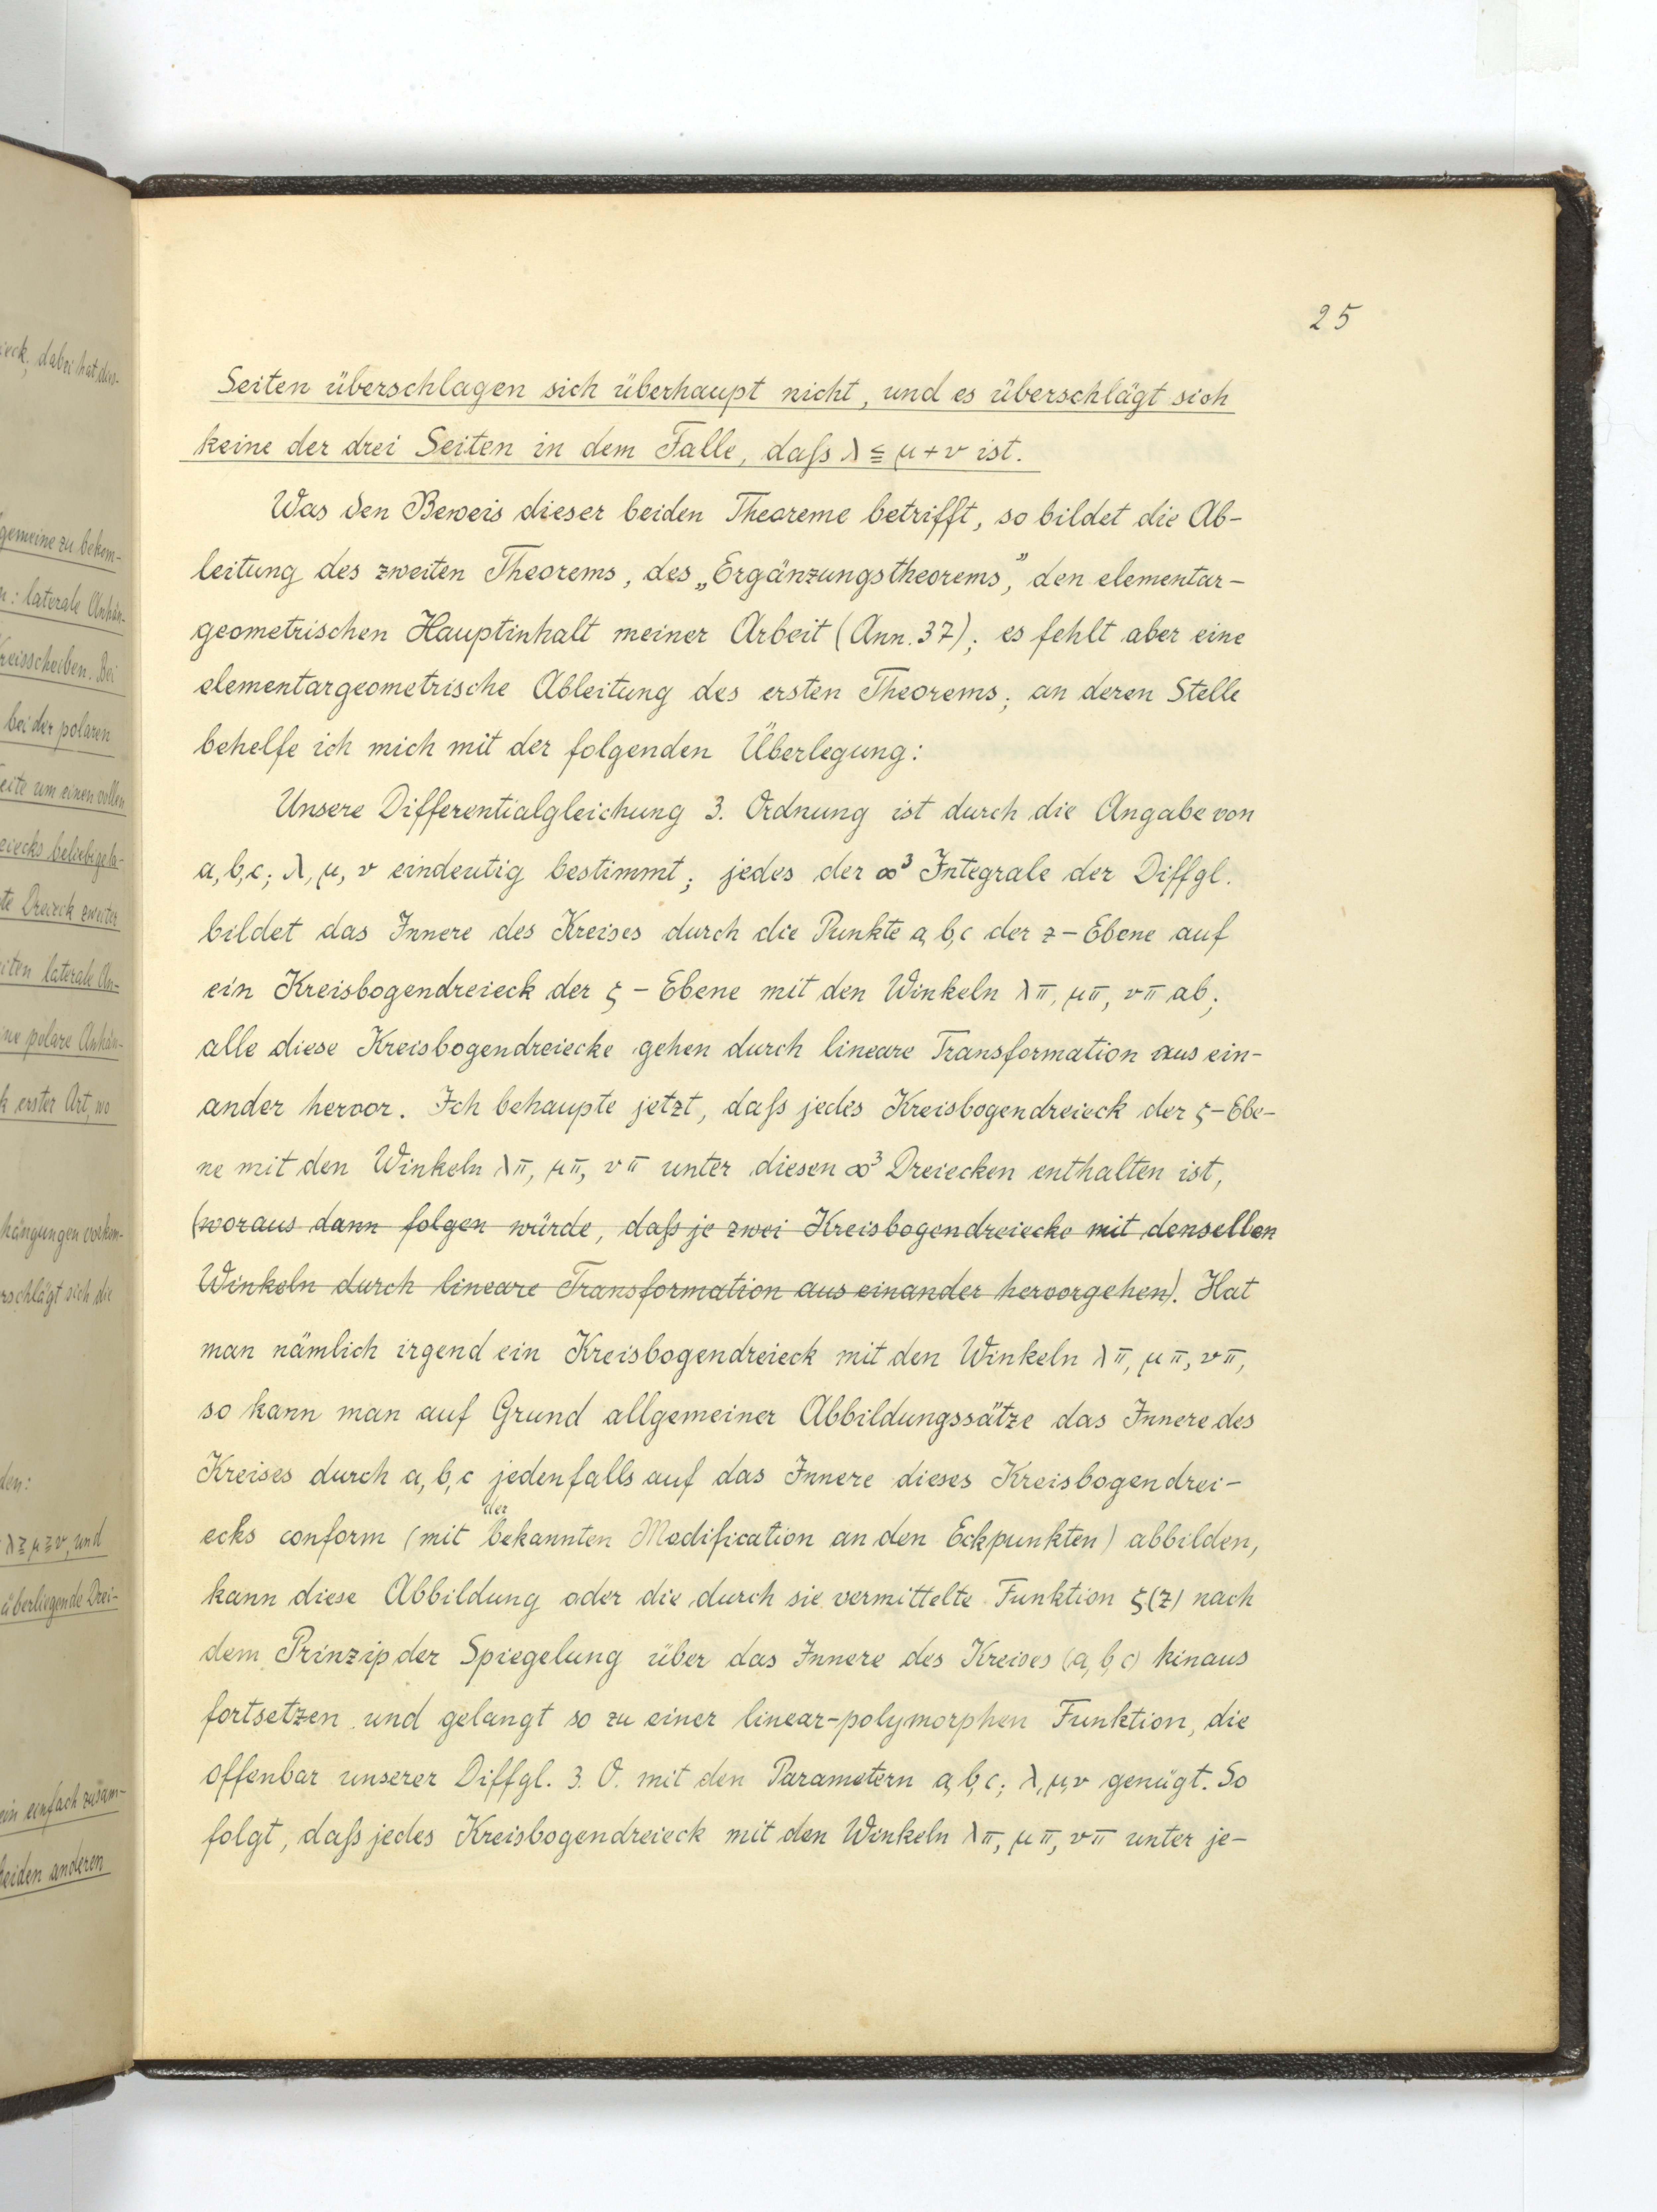 25
Seiten überschlagen sich überhaupt nicht, und es überschlägt sich
keine der drei Seiten in dem Falle, daſs λ ≦ μ + ν ist.
Was den Beweis dieser beiden Theoreme betrifft, so bildet die Ab-
leitung des zweiten Theorems, des „Ergänzungstheorems“, den elementar-
geometrischen Hauptinhalt meiner Arbeit (Ann. 37); es fehlt aber eine
elementargeometrische Ableitung des ersten Theorems; an deren Stelle
behelfe ich mich mit der folgenden Überlegung:
Unsere Differentialgleichung 3. Ordnung ist durch die Angabe von
a, b, c; λ, μ, ν eindeutig bestimmt; jedes der ∞³ Integrale der Diffgl.
bildet das Innere des Kreises durch die Punkte a, b, c der z-Ebene auf
ein Kreisbogendreieck der ζ-Ebene mit den Winkeln λπ, μπ, νπ ab;
alle diese Kreisbogendreiecke gehen durch lineare Transformation aus ein-
ander hervor. Ich behaupte jetzt, daſs jedes Kreisbogendreieck der ζ-Ebe-
ne mit den Winkeln λπ, μπ, νπ unter diesen ∞³ Dreiecken enthalten ist,
(woraus dann folgen würde, daſs je zwei Kreisbogendreiecke mit denselben
Winkeln durch lineare Transformation aus einander hervorgehen). Hat
man nämlich irgend ein Kreisbogendreieck mit den Winkeln λπ, μπ, νπ,
so kann man auf Grund allgemeiner Abbildungssätze das Innere des
Kreises durch a, b, c jedenfalls auf das Innere dieses Kreisbogendrei-
ecks conform (mit der bekannten Modification an den Eckpunkten) abbilden,
kann diese Abbildung oder die durch sie vermittelte Funktion ζ(z) nach
dem Prinzip der Spiegelung über das Innere des Kreises (a, b, c) hinaus
fortsetzen und gelangt so zu einer linear-polymorphen Funktion, die
offenbar unserer Diffgl. 3. O. mit den Parametern a, b, c; λ, μ, ν genügt. So
folgt, daſs jedes Kreisbogendreieck mit den Winkeln λπ, μπ, νπ unter je-